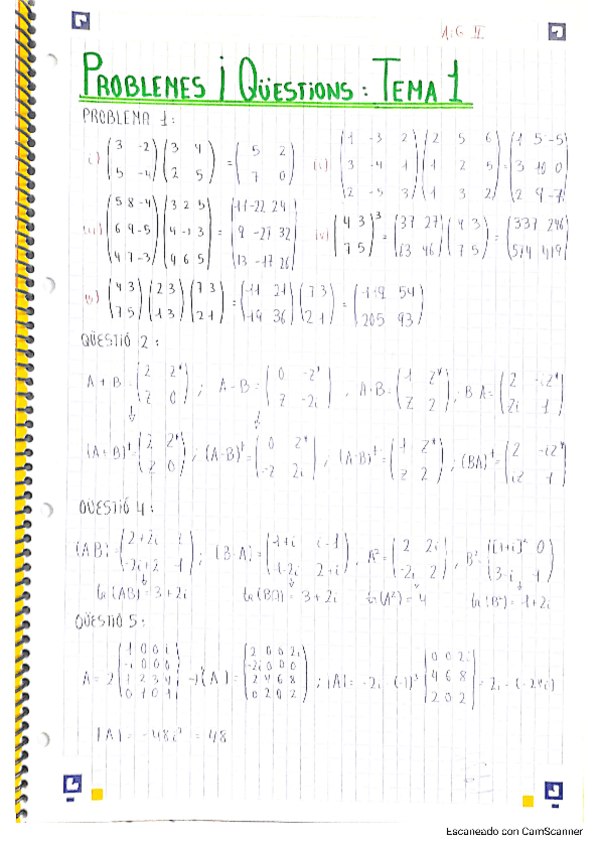 A.G II
PROBLEMES i QÜESTIONS: TEMA 1
PROBLEMA 1:
i) (3 -2; 5 -4) (3 4; 2 5) = (5 2; 7 0)
(1 -3 2; 3 -4 1; 2 -5 3) (2 5 6; 1 2 5; 1 3 2) = (1 5 -5; 3 10 0; 2 9 -7)
(5 8 -4; 6 9 -5; 4 7 -3) (3 2 5; 4 -1 3; 4 6 5) = (11 -22 29; 9 -27 32; 13 -17 26)
iv) (4 3; 7 5)³ = (37 27; 63 46) (4 3; 7 5) = (337 246; 574 419)
v) (4 3; 7 5) (2 3; 1 3) (7 3; 2 1) = (11 21; 19 36) (7 3; 2 1) = (119 54; 205 93)
QÜESTIÓ 2:
A + B = ; A - B = , A·B = , B A =
(A+B)ᵗ = ; (A-B)ᵗ = ; (A·B)ᵗ = ; (BA)ᵗ =
QÜESTIÓ 4:
(AB) = (2+2i i; -2i+2 1) ; (B·A) = (1+i i-1; 1-2i 2+i) , A² = (2 2i; -2i 2) , B² = ([1+i]² 0; 3-i 1)
tr(AB) = 3+2i tr(BA) = 3+2i tr(A²) = 4 tr(B²) = 1+2i
QÜESTIÓ 5:
A = 2 (1 0 0 i; -i 0 0 0; 1 2 3 4; 0 1 0 1) → (A) = (2 0 0 2i; -2i 0 0 0; 2 4 6 8; 0 2 0 2) ; |A| = -2i · (-1)³ (0 0 2i; 4 6 8; 2 0 2) = 2i · (-24i)
|A| = -48i² = 48
Escaneado con CamScanner